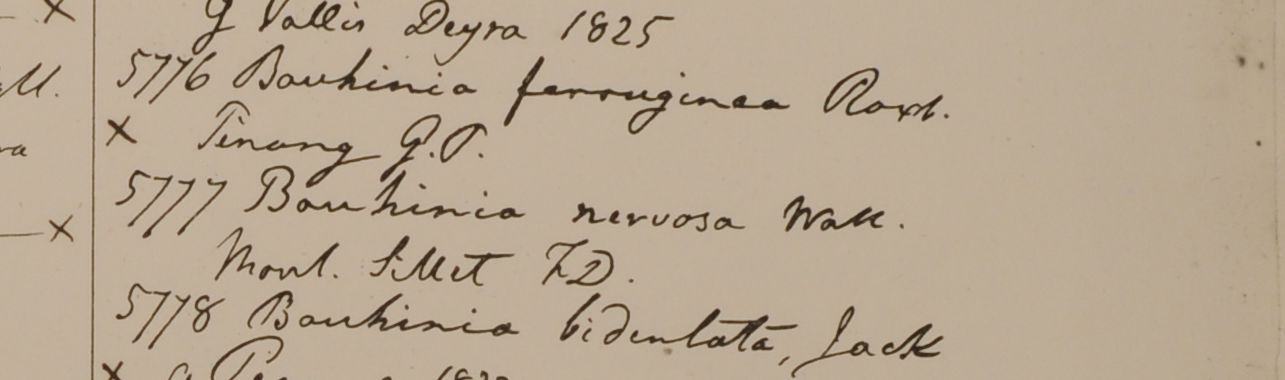 × g Vallis Deyra 1825
ll. 5776 Bauhinia ferruginea Roxb.
× Pinang G.P.
ra
5777 Bauhinia nervosa Wall.
× Mont. Sillet F.D.
5778 Bauhinia bidentata, Jack
×